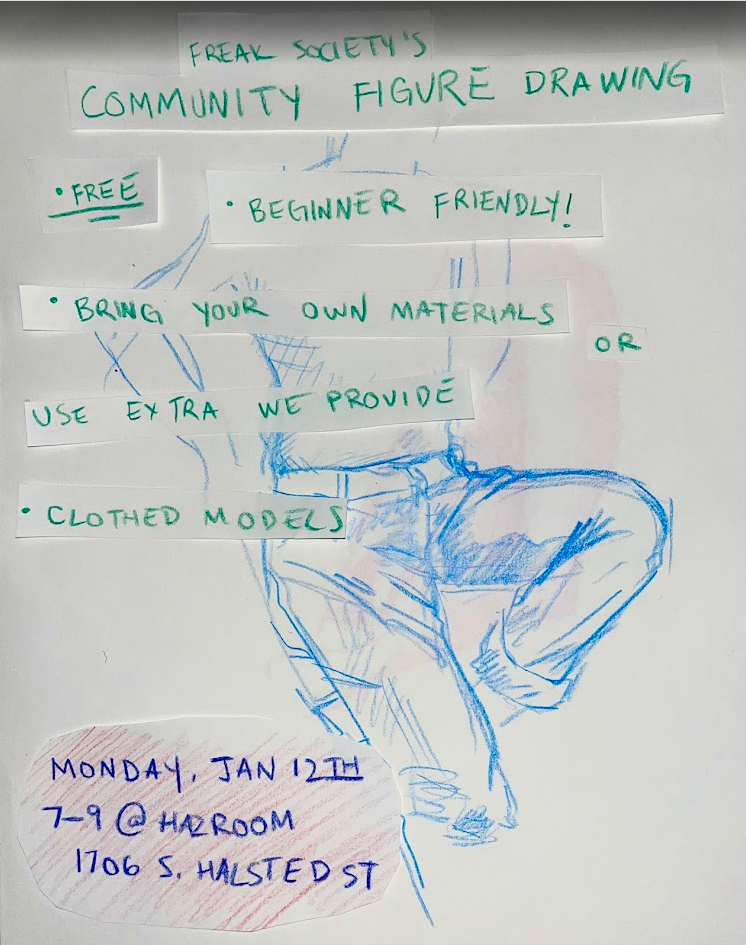 FREAK SOCIETY'S
COMMUNITY FIGURE DRAWING
• FREE
• BEGINNER FRIENDLY!
• BRING YOUR OWN MATERIALS
OR
USE EXTRA WE PROVIDE
• CLOTHED MODELS
MONDAY, JAN 12TH
7-9 @ HAZROOM
1706 S. HALSTED ST